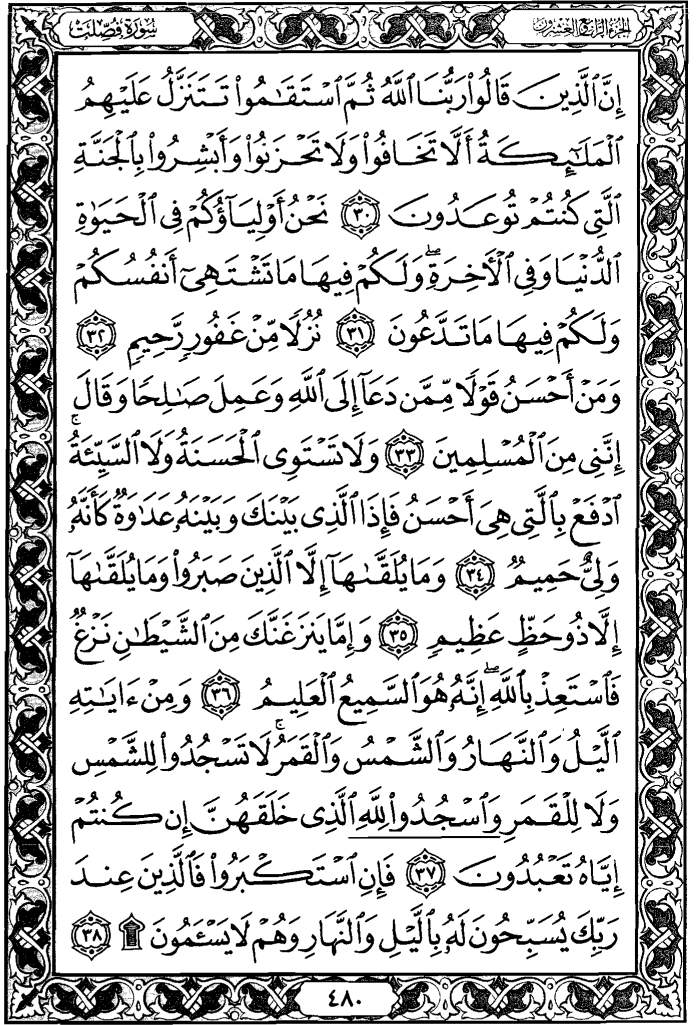 سورة فصلت
الجزء الرابع والعشرون
إِنَّ ٱلَّذِينَ قَالُوا۟ رَبُّنَا ٱللَّهُ ثُمَّ ٱسْتَقَٰمُوا۟ تَتَنَزَّلُ عَلَيْهِمُ
ٱلْمَلَٰٓئِكَةُ أَلَّا تَخَافُوا۟ وَلَا تَحْزَنُوا۟ وَأَبْشِرُوا۟ بِٱلْجَنَّةِ
ٱلَّتِى كُنتُمْ تُوعَدُونَ ٣٠ نَحْنُ أَوْلِيَآؤُكُمْ فِى ٱلْحَيَوٰةِ
ٱلدُّنْيَا وَفِى ٱلْءَاخِرَةِ ۖ وَلَكُمْ فِيهَا مَا تَشْتَهِىٓ أَنفُسُكُمْ
وَلَكُمْ فِيهَا مَا تَدَّعُونَ ٣١ نُزُلًا مِّنْ غَفُورٍ رَّحِيمٍ ٣٢
وَمَنْ أَحْسَنُ قَوْلًا مِّمَّن دَعَآ إِلَى ٱللَّهِ وَعَمِلَ صَٰلِحًا وَقَالَ
إِنَّنِى مِنَ ٱلْمُسْلِمِينَ ٣٣ وَلَا تَسْتَوِى ٱلْحَسَنَةُ وَلَا ٱلسَّيِّئَةُ ۚ
ٱدْفَعْ بِٱلَّتِى هِىَ أَحْسَنُ فَإِذَا ٱلَّذِى بَيْنَكَ وَبَيْنَهُۥ عَدَٰوَةٌ كَأَنَّهُۥ
وَلِىٌّ حَمِيمٌ ٣٤ وَمَا يُلَقَّىٰهَآ إِلَّا ٱلَّذِينَ صَبَرُوا۟ وَمَا يُلَقَّىٰهَآ
إِلَّا ذُو حَظٍّ عَظِيمٍ ٣٥ وَإِمَّا يَنزَغَنَّكَ مِنَ ٱلشَّيْطَٰنِ نَزْغٌ
فَٱسْتَعِذْ بِٱللَّهِ ۖ إِنَّهُۥ هُوَ ٱلسَّمِيعُ ٱلْعَلِيمُ ٣٦ وَمِنْ ءَايَٰتِهِ
ٱلَّيْلُ وَٱلنَّهَارُ وَٱلشَّمْسُ وَٱلْقَمَرُ ۚ لَا تَسْجُدُوا۟ لِلشَّمْسِ
وَلَا لِلْقَمَرِ وَٱسْجُدُوا۟ لِلَّهِ ٱلَّذِى خَلَقَهُنَّ إِن كُنتُمْ
إِيَّاهُ تَعْبُدُونَ ٣٧ فَإِنِ ٱسْتَكْبَرُوا۟ فَٱلَّذِينَ عِندَ
رَبِّكَ يُسَبِّحُونَ لَهُۥ بِٱلَّيْلِ وَٱلنَّهَارِ وَهُمْ لَا يَسْـَٔمُونَ ۩ ٣٨
٤٨٠